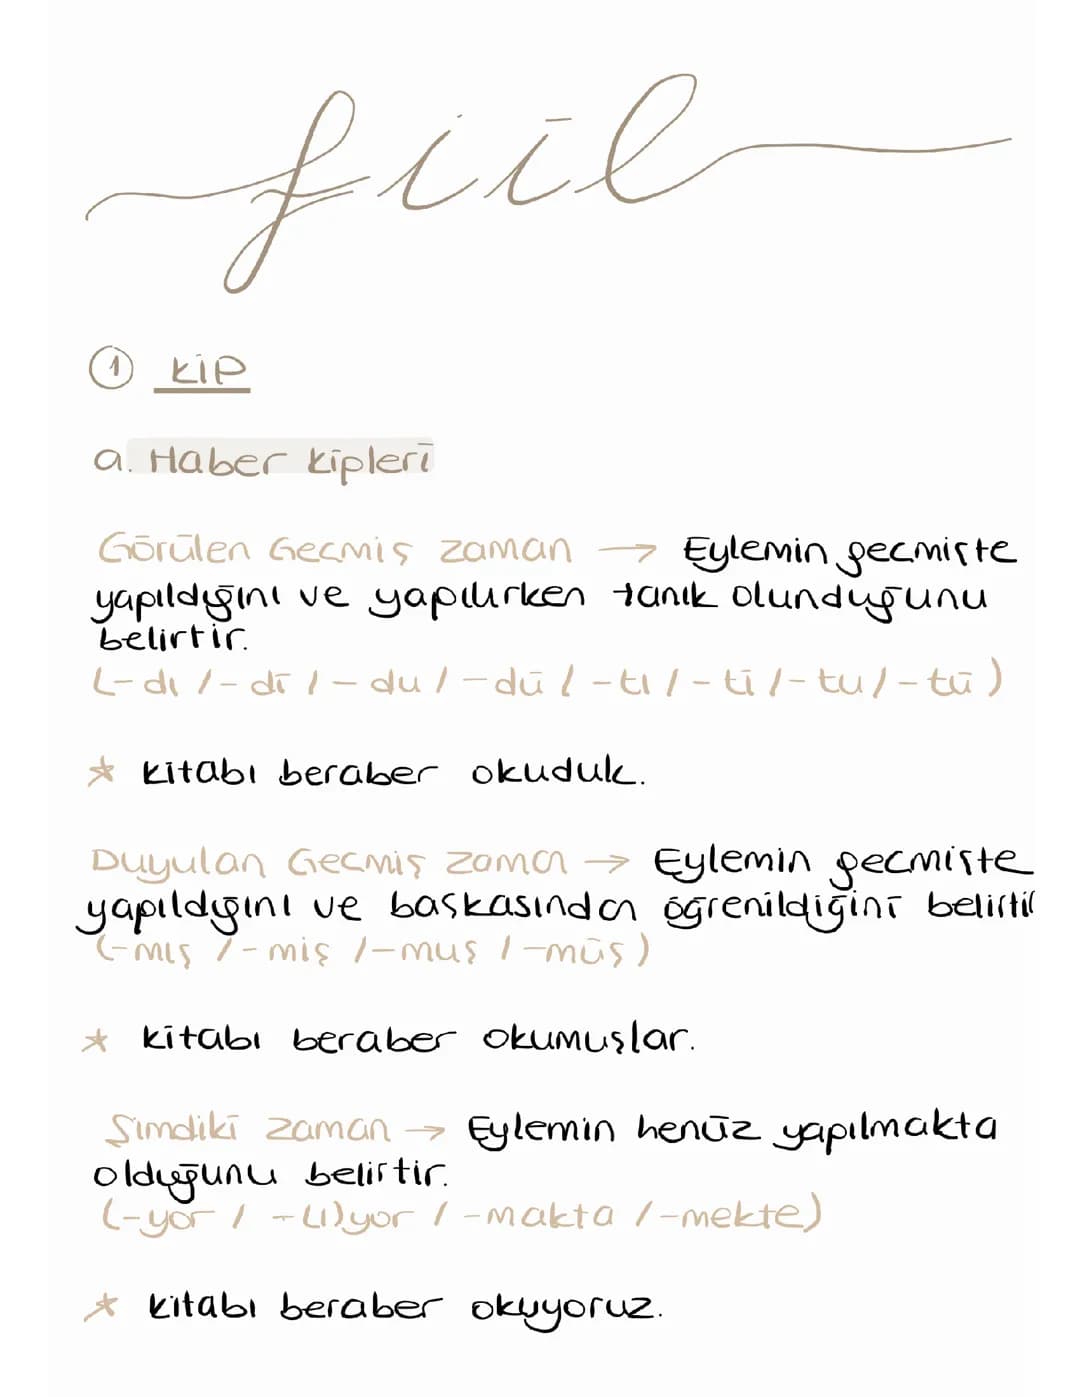 fiil
1 KİP
a. Haber kipleri
Görülen Geçmiş zaman → Eylemin geçmişte
yapıldığını ve yapılırken tanık olunduğunu
belirtir.
(-dı /-di /-du /-dü /-tı /-ti /-tu /-tü)
* kitabı beraber okuduk.
Duyulan Geçmiş zaman → Eylemin geçmişte
yapıldığını ve başkasından öğrenildiğini belirtir
(-mış /-miş /-muş /-müş)
* kitabı beraber okumuşlar.
Şimdiki zaman → Eylemin henüz yapılmakta
olduğunu belirtir.
(-yor / -(ı)yor / -makta /-mekte)
* kitabı beraber okuyoruz.